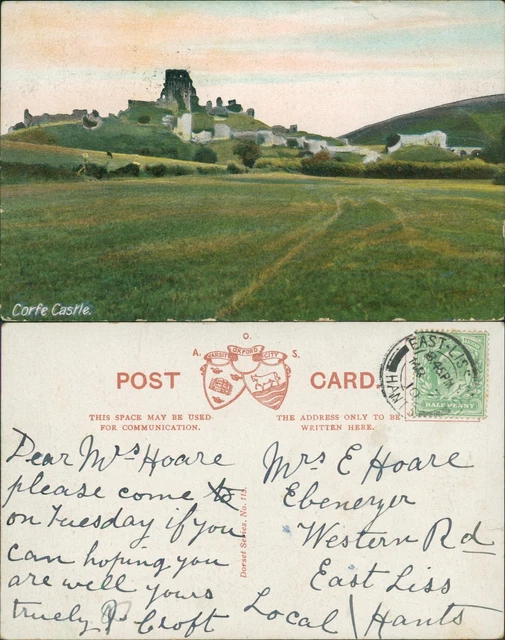 Corfe Castle.
A. O. S.
VARSITY OXFORD CITY
POST CARD.
THIS SPACE MAY BE USED
FOR COMMUNICATION.
THE ADDRESS ONLY TO BE
WRITTEN HERE.
EAST-LISS
HALFPENNY
Dorset Series. No. 115.
Dear Mrs Hoare
please come to
on Tuesday if you
can hoping you
are well yours
truely
Croft
Mrs E Hoare
Ebenezer
Western Rd
East Liss
Local Hants